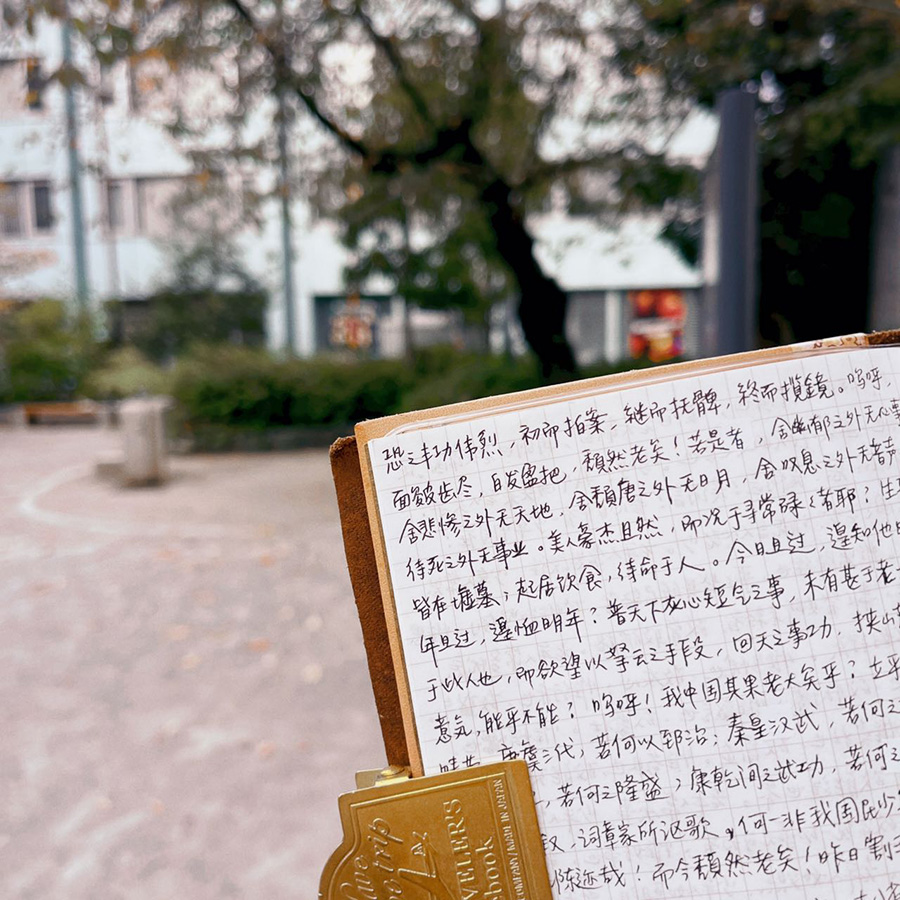 之丰功伟烈，初而拍案，继而抚髀，终而揽镜。呜呼，
面皴齿尽，白发盈把，颓然老矣！若是者，舍幽郁之外无心事
舍悲惨之外无天地，舍颓唐之外无日月，舍叹息之外无音声
待死之外无事业。美人豪杰且然，而况于寻常碌々者耶？生平
皆在墟墓；起居饮食，待命于人。今日且过，遑知他日
年且过，遑恤明年？普天下灰心短气之事，未有甚于老大
于此人也，而欲望以拏云之手段，回天之事功，挟山
意气，能乎不能？呜呼！我中国其果老大矣乎？立乎
畴昔，唐虞三代，若何以郅治；秦皇汉武，若何之
，若何之隆盛；康乾间之武功，若何之
叙，词章家所讴歌，何一非我国民少
陈迹哉！而今颓然老矣！昨日割五
TRAVELER'S
notebook
COMPANY/MADE IN JAPAN